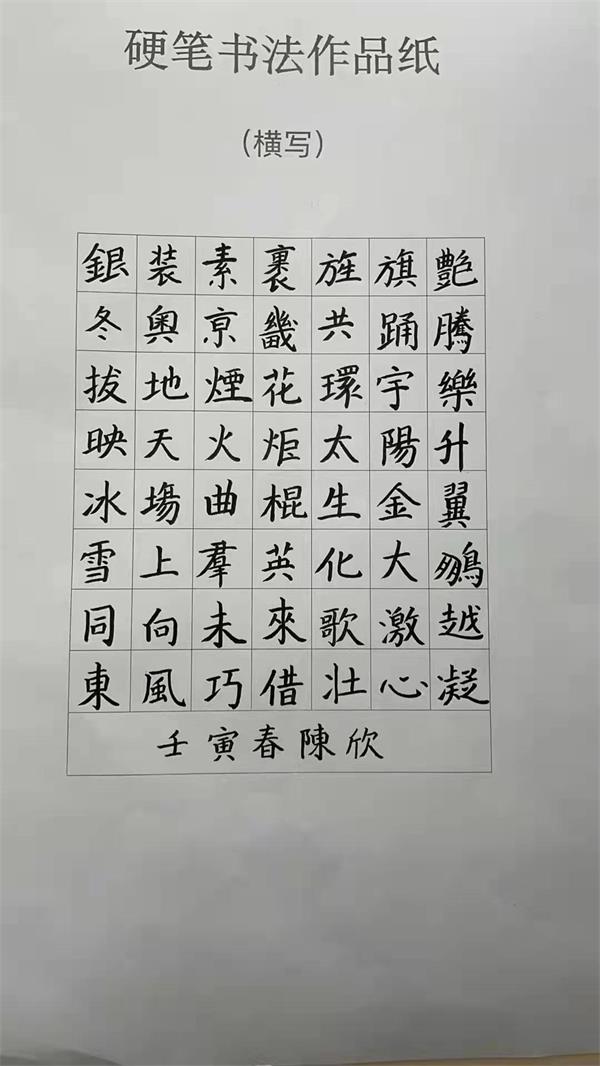 硬笔书法作品纸
（横写）
銀装素裹旌旗艷
冬奥京畿共踊騰
拔地煙花環宇樂
映天火炬太陽升
冰場曲棍生金翼
雪上羣英化大鵬
同向未來歌激越
東風巧借壮心凝
壬寅春陳欣